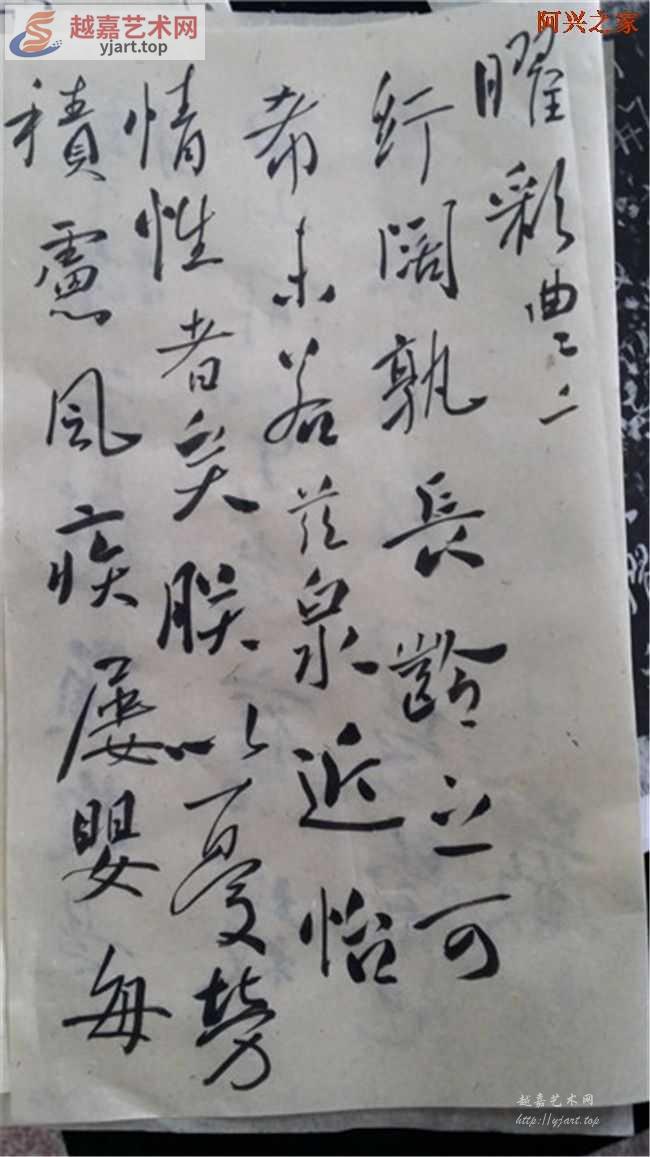 越嘉艺术网
yjart.top
阿兴之家
曜彩
紆阔孰長齡之可
希未若茲泉近怡
情性者矣朕以憂勞
積慮風疾屢嬰每
越嘉艺术网
http://yjart.top